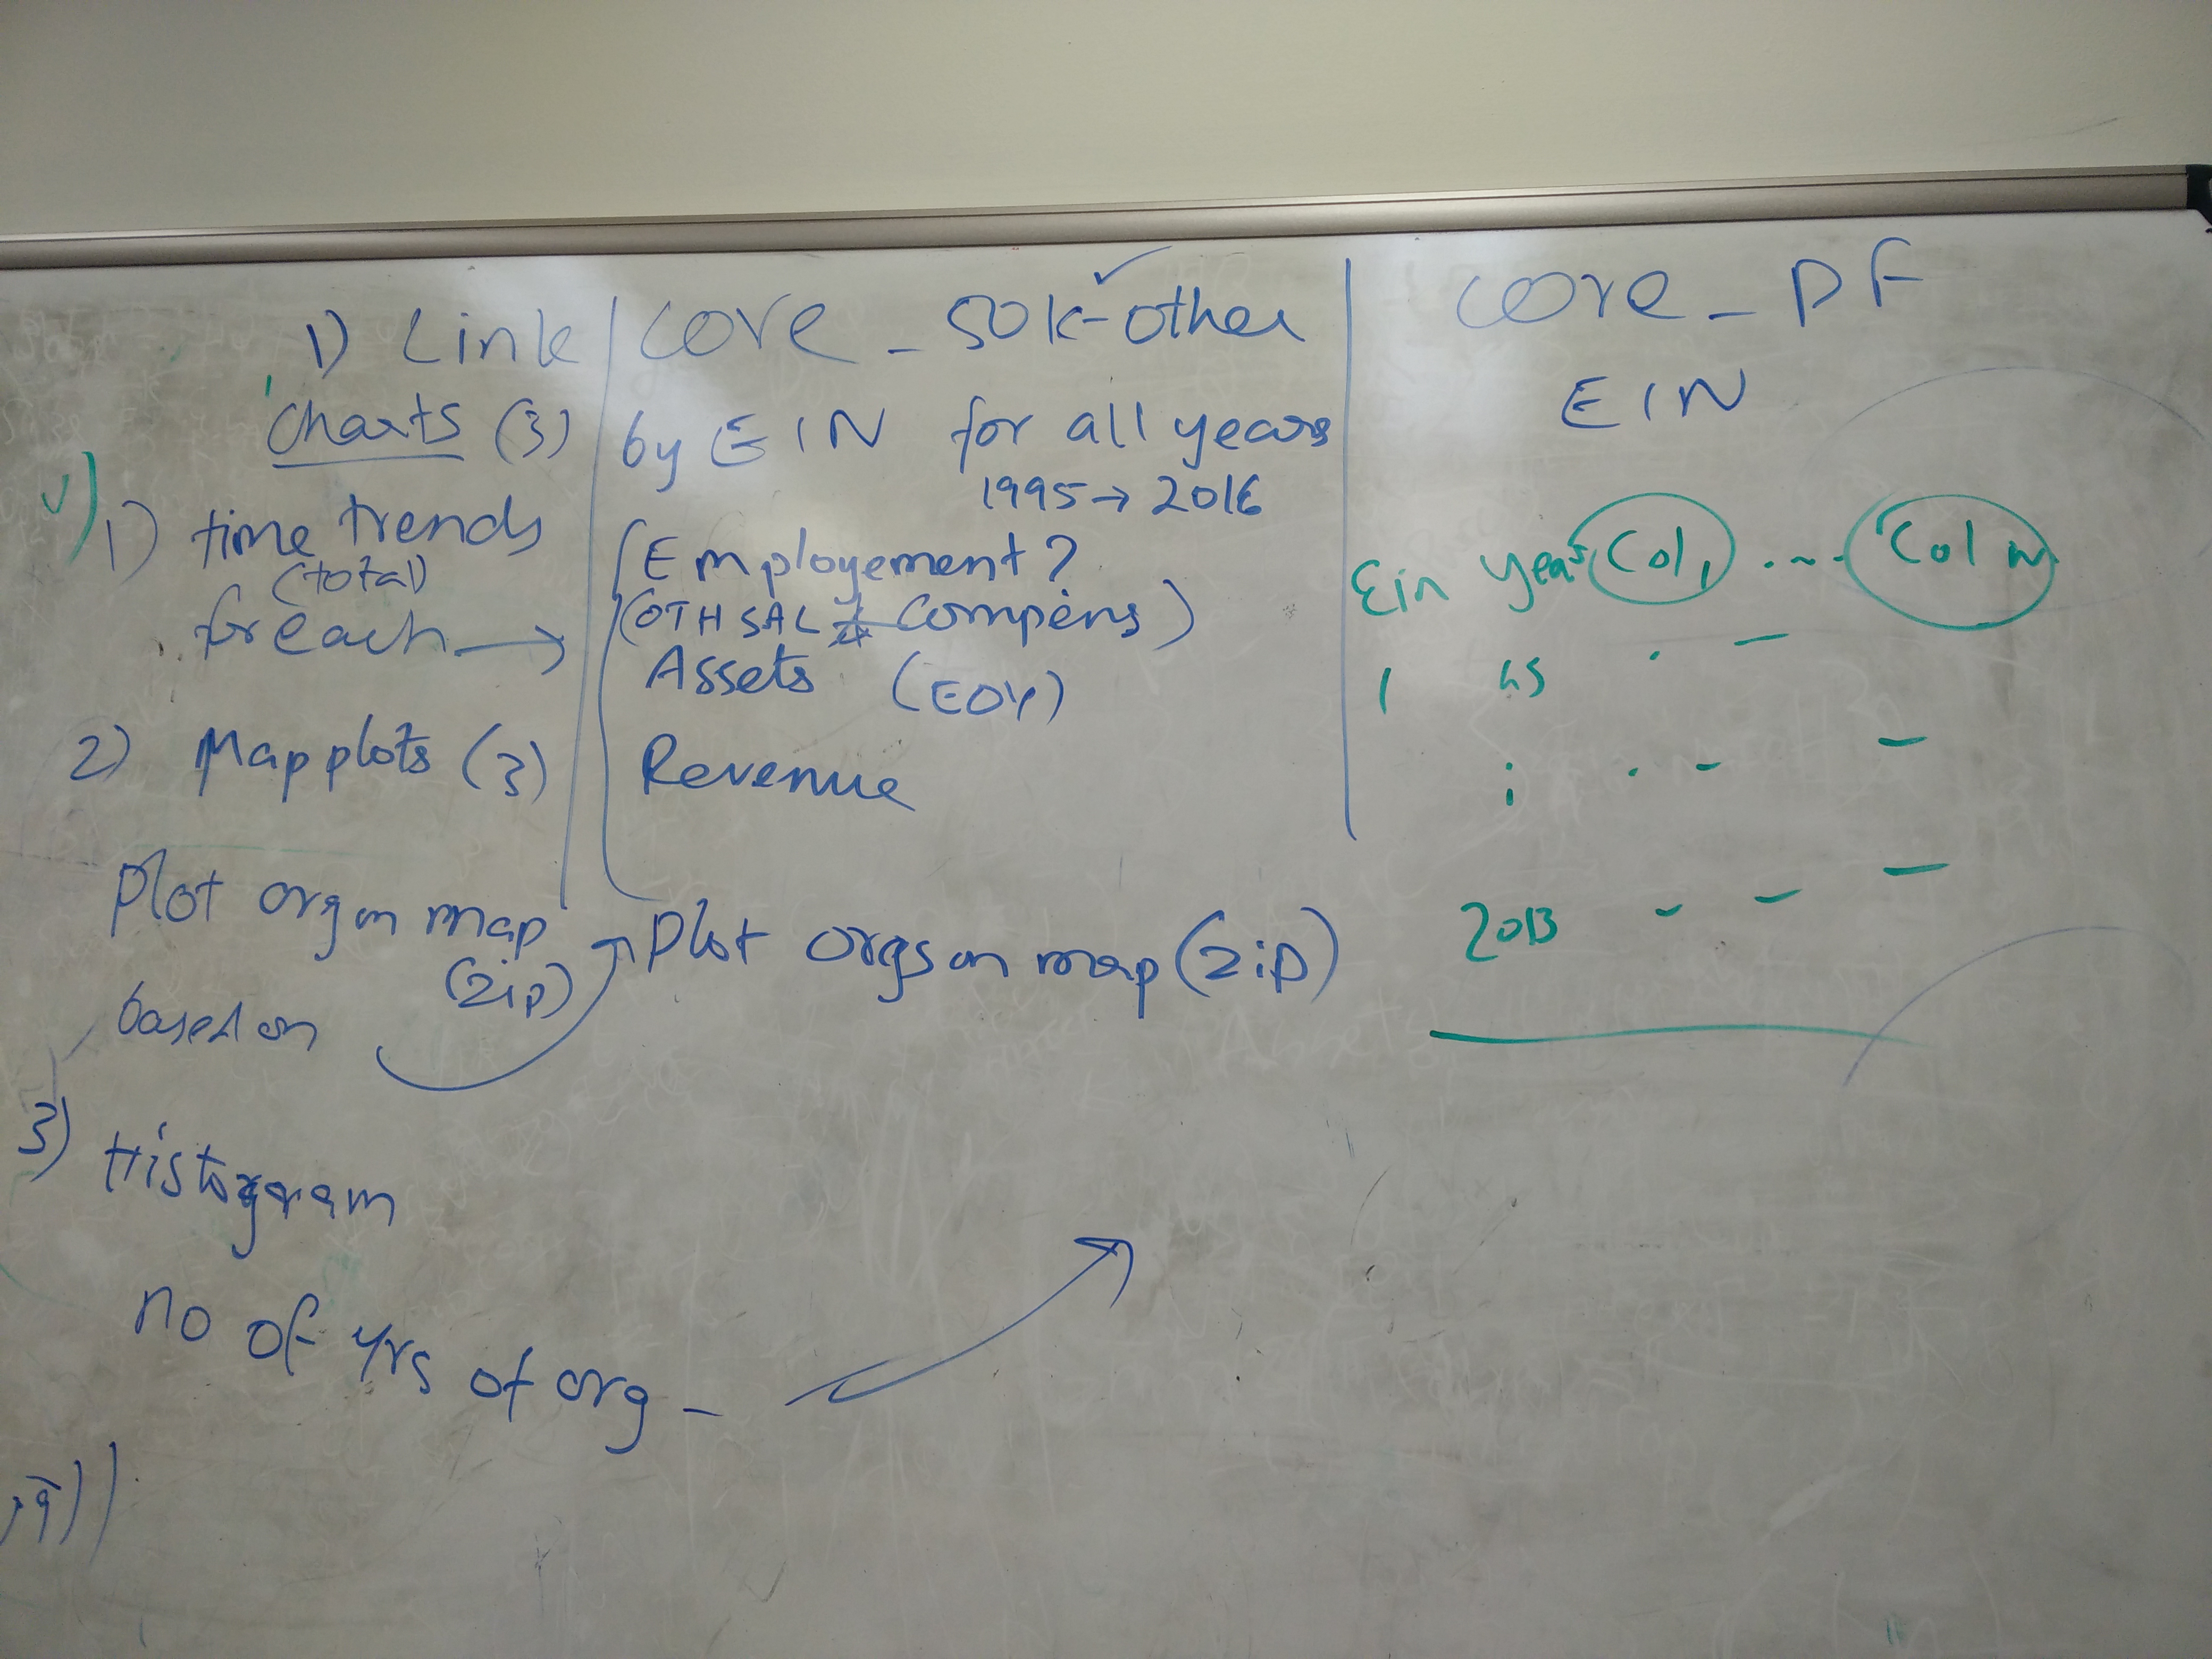 1) Link
Charts (3)
1) time trends
(total)
for each →
2) Map plots (3)
Plot org on map
(zip)
based on
3) Histogram
no of yrs of org -
Core_50k-other
by EIN for all years
1995 → 2016
Employement?
(OTHSAL Compens)
Assets (EOY)
Revenue
Plot orgs on map (zip)
Core_PF
EIN
Ein year Col1 .... Col n
1
2013